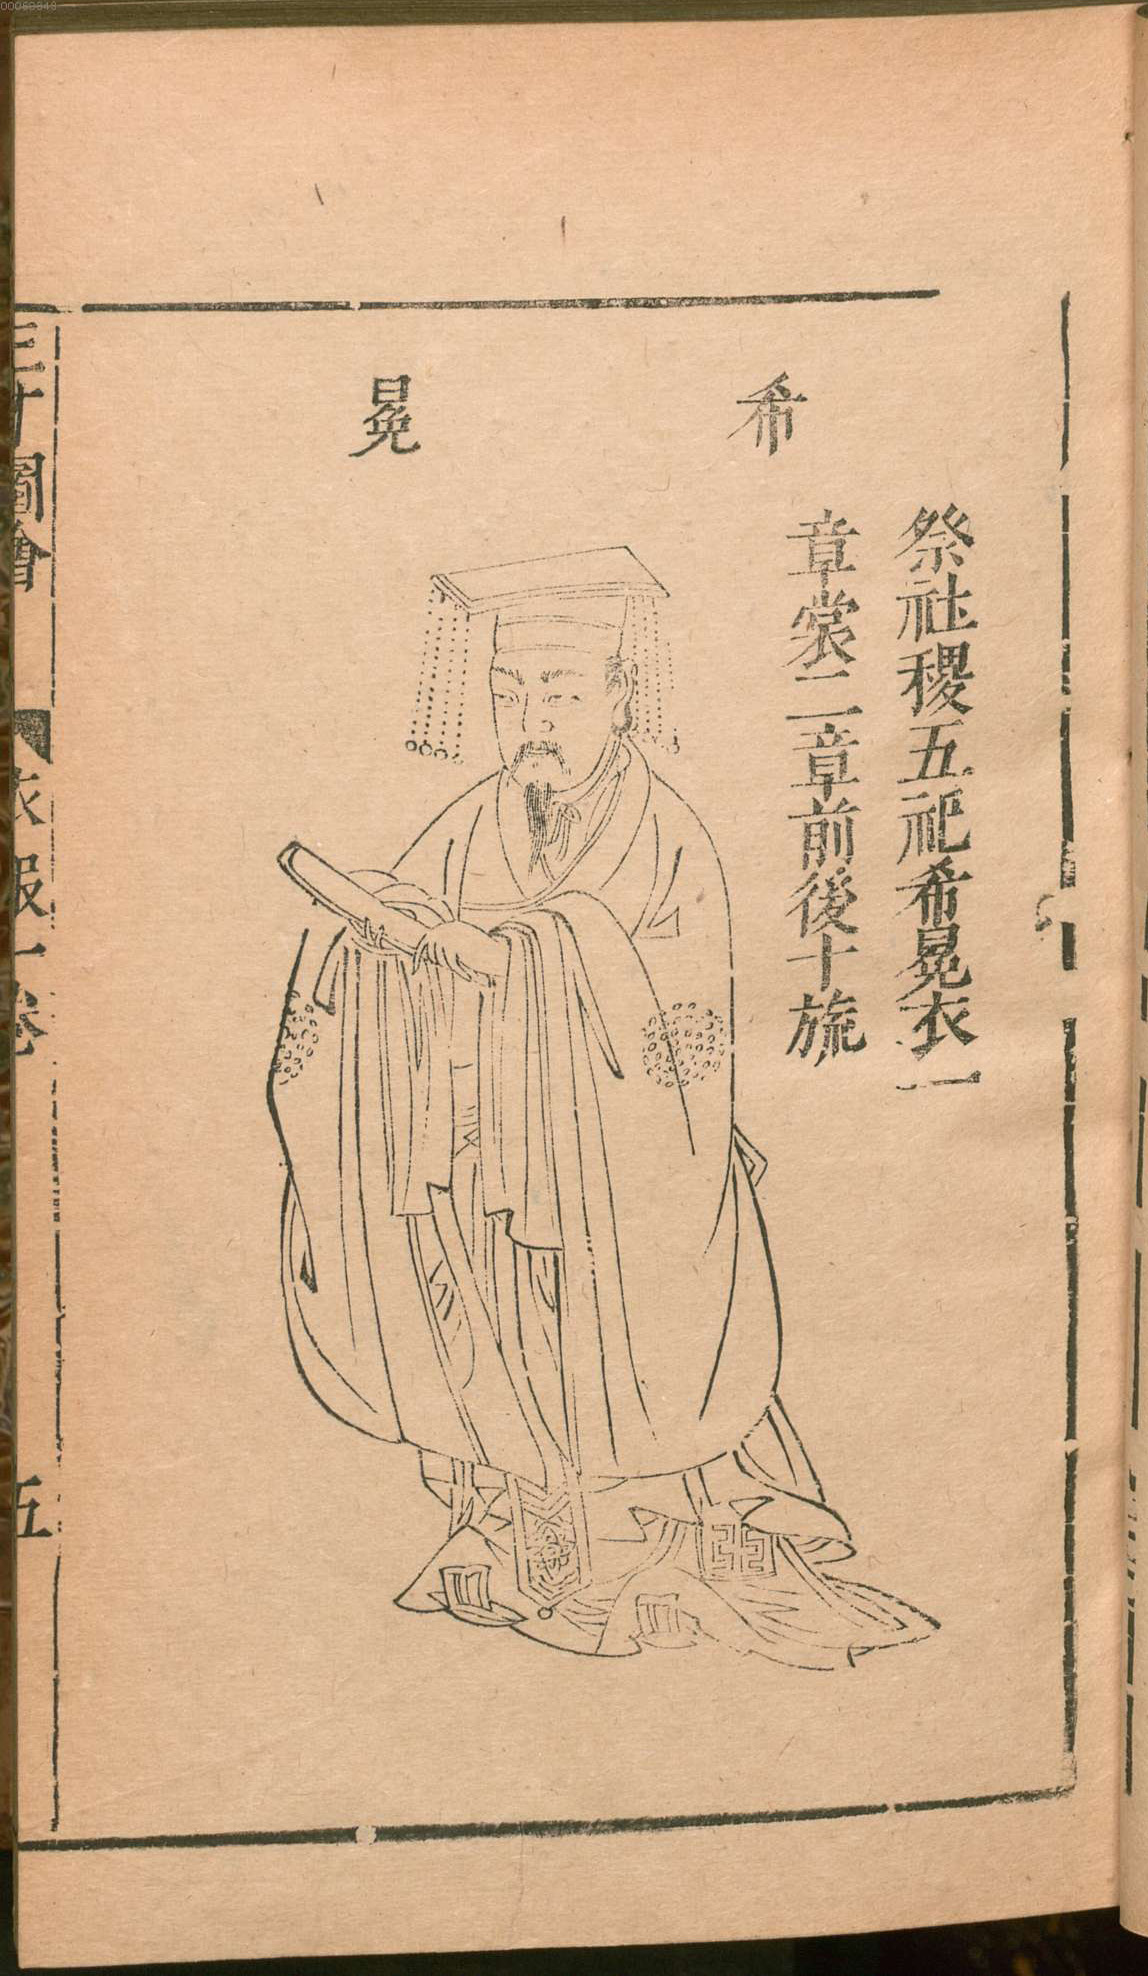 希冕
祭社稷五祀希冕衣一
章裳二章前後十旒
三才圖會
衣服一卷
五
00058848